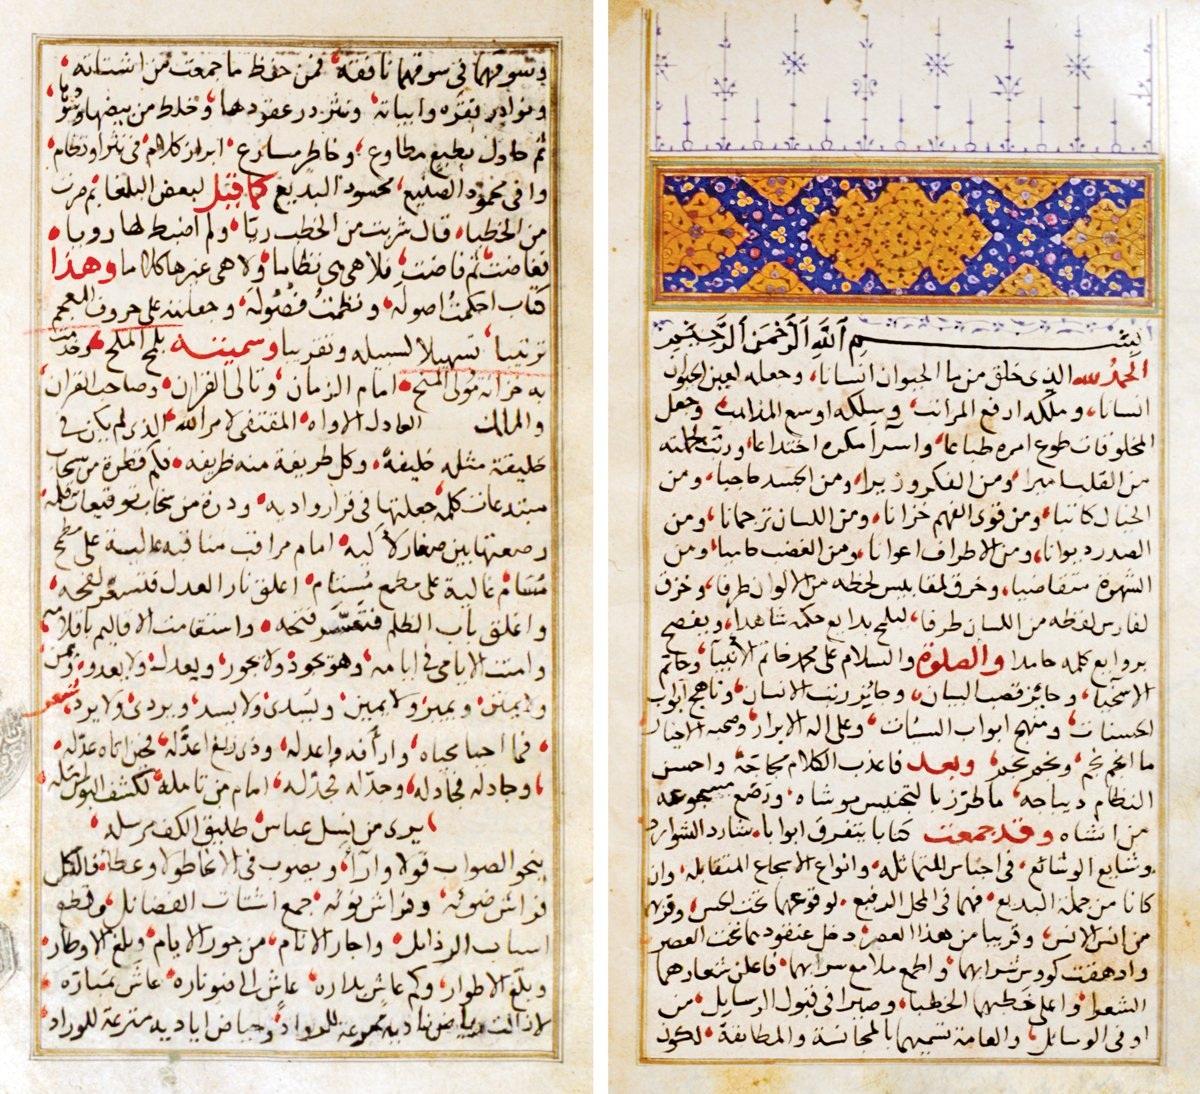 بسم الله الرحمن الرحيم
الحمد لله الذي خلق من ما الحيوان انسانا، وجعله لعين الحيوان
انسانا، وملكه ارفع المراتب، وسلكه اوسع المذاهب، وجعل
المخلوقات طوع امره طباعا، واسرا مكره اختداعا، ورتب لخلقته
من القلب اميرا، ومن الفكر وزيرا، ومن الحسد حاجبا، ومن
الخيال كاتبا، ومن قوى الفهم خزانا، ومن اللسان ترجمانا، ومن
الصدر ديوانا، ومن الاطراف اعوانا، ومن الغضب حاميا، ومن
الشهوة متقاضيا، وخرق لمقابس لحظه من الالوان طرفا، وخرق
لفارس لفظه من اللسان طرفا، ليلمح بدايع حكمه شاهدا، ويفصح
بروايع كلمه حامدا والصلوة والسلام على محمد خاتم الأنبيا، وخاتم
الاسخيا، وحائز قصب البيان، وحائز رتب الانسان، وناهج ابواب
الحسنات، ومنهج ابواب السيئات، وعلى اله الابرار، وصحبه الاخيار
ما انجم نجم، ونجم نجم، وبعد فاعذب الكلام مجاجة، واحسن
النظام ديباجه، ما طرز بالتجنيس موشاه، ورصع مسجوعه
من انشاه، وقد جمعت كتابا يتفرق ابوابا، شارد الشوارد
وشايع الوشائع، في اجناس المتماثلة، وانواع الاسجاع المتقابله، وان
كانا من جملة البديع، فهما في المحل الرفيع، لوقوعهما تحت الحس، وقربهما
من انس الانس، وقريبا من هذا العصر، دخل عنقودهما تحت العصر
وادهقت كووس شرابهما، واطمع ملامع سرابهما، فاعلن شعارهما
الشعرا، واعلى خطبهما الخطبا، وصيرا في قبول الرسايل، من
اوفى الوسايل، والعامة تسميهما بالمجانسة والمطابقة، لكون
وسوقهما في سوقهما نافقة، فمن حفظ ما جمعت من اشتاته،
ونوادر نقره وابياته، ونثر در عقودها، وخلط من بيضها وسودها
ثم حاول بطبع مطاوع، وخاطر مسارع، ابراز كلام، في نثر او نظام،
وافى محمود الصنيع، محسود البديع كما قيل لبعض البلغا بم صرت
من الخطبا، قال شربت من الخطب ريا، ولم اضبط لها رويا،
فغاضت، ثم فاضت، فلا هي هي نظاما، ولا هي غيرها كلاما، وهذا
كتاب احكمت اصوله، ونظمت فصوله، وجعلته على حروف المعجم
ترتيبا، تسهيلا لسبيله وتقريبا وسميته بملح الملح، وخدمت
به خزانة مولى المنح، امام الزمان، وتالي القران، وصاحب القران
والمالك العادل الاواه، المقتفي لامر الله، الذي لم يكن في
خليقة مثله خليفة، وكل طريقة منه ظريفه، فكم قطرة من سحاب
مبتدعات كلمه، جعلتها في قرار واديه، ودرة من سخاب توقيعات قلمه
رصعتها بين صغار لآليه، امام مراقب مناقبه عالية على مطمح
مسام، غالية على مطمع مستام، اغلق نار العدل فتسعر لفحه،
واغلق باب الظلم فتعسر فتحه، واستقامت الاقاليم باقلامه
وامنت الايامى في ايامه، وهو يجود ولا يجور، ويعدل ولا يعدو، ويمن
ولا يمتن، ويمير ولا يمين، ويسدي ولا يسد، ويردي ولا يرد، شعر
فما احيا محياه، وارأفه واعدله، وذي زيغ اعد له، فحين اتاه عدله
وجادله فجاد له، وجدله فجد له، امام من تأمله، لكشف البوس امله
يرى من نسل عباس، طليق الكف مرسله،
ينحو الصواب قولا وارآ، ويصوب في الاغاطولا وعطا، فالكل
فراش ضوئه، وفراش نوئه، جمع اشتات الفضائل، وقطع
اسباب الرذايل، واجار الانام، من جور الايام، وبلغ الاوطار
وبلغ الاطوار، وكم عاش بداره، عاش الى ضو ناره، عاش بمباره،
لازالت رياض ناديه ممرعة للرواد، وحياض اياديه مترعة للوراد،